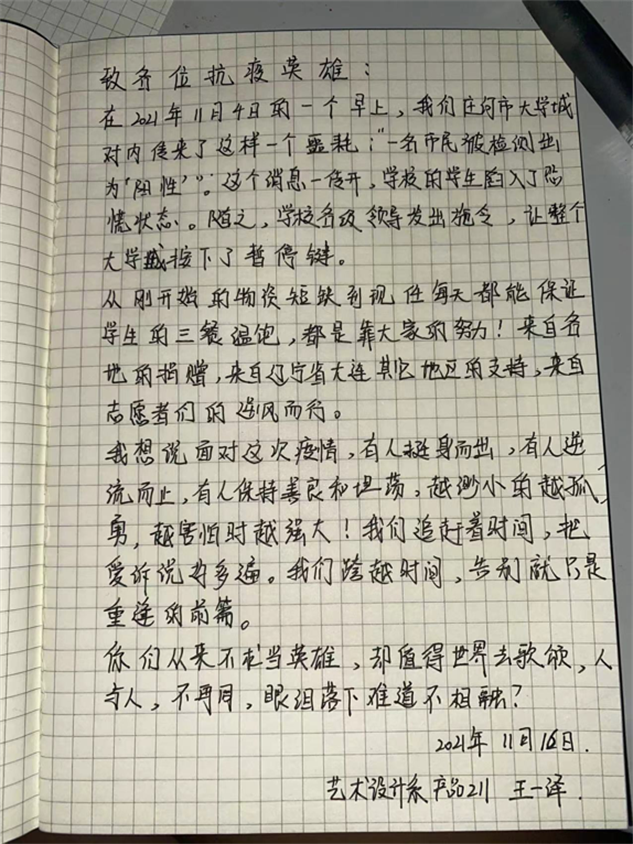 致各位抗疫英雄：
在2021年11月4日的一个早上，我们庄河市大学城
对内传来了这样一个噩耗：“一名市民被检测出
为‘阳性’”。这个消息一传开，学校的学生陷入了恐
慌状态。随之，学校各级领导发出施令，让整个
大学城按下了暂停键。
从刚开始的物资短缺到现在每天都能保证
学生的三餐温饱，都是靠大家的努力！来自各
地的捐赠，来自辽宁省大连其它地区的支持，来自
志愿者们的逆风而行。
我想说面对这次疫情，有人挺身而出，有人逆
流而上，有人保持善良和坦荡，越渺小的越孤
勇，越害怕时越强大！我们追赶着时间，把
爱诉说好多遍。我们跨越时间，告别就只是
重逢的前篇。
你们从来不求当英雄，却值得世界去歌颂，人
与人，不再同，眼泪落下难道不相融？
2021年 11月16日.
艺术设计系 产品211 王一泽.